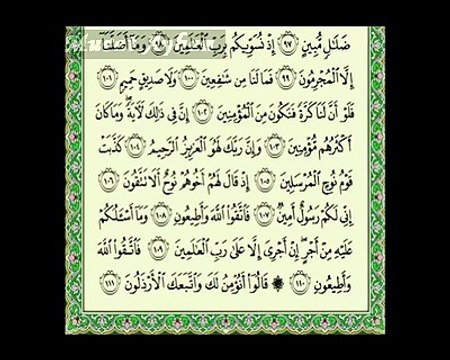 ضَلَٰلٍ مُّبِينٍ ٩٧ إِذْ نُسَوِّيكُم بِرَبِّ ٱلْعَٰلَمِينَ ٩٨ وَمَآ أَضَلَّنَآ
إِلَّا ٱلْمُجْرِمُونَ ٩٩ فَمَا لَنَا مِن شَٰفِعِينَ ١٠٠ وَلَا صَدِيقٍ حَمِيمٍ ١٠١
فَلَوْ أَنَّ لَنَا كَرَّةً فَنَكُونَ مِنَ ٱلْمُؤْمِنِينَ ١٠٢ إِنَّ فِى ذَٰلِكَ لَءَايَةً ۖ وَمَا كَانَ
أَكْثَرُهُم مُّؤْمِنِينَ ١٠٣ وَإِنَّ رَبَّكَ لَهُوَ ٱلْعَزِيزُ ٱلرَّحِيمُ ١٠٤ كَذَّبَتْ
قَوْمُ نُوحٍ ٱلْمُرْسَلِينَ ١٠٥ إِذْ قَالَ لَهُمْ أَخُوهُمْ نُوحٌ أَلَا تَتَّقُونَ ١٠٦
إِنِّى لَكُمْ رَسُولٌ أَمِينٌ ١٠٧ فَٱتَّقُوا۟ ٱللَّهَ وَأَطِيعُونِ ١٠٨ وَمَآ أَسْـَٔلُكُمْ
عَلَيْهِ مِنْ أَجْرٍ ۖ إِنْ أَجْرِىَ إِلَّا عَلَىٰ رَبِّ ٱلْعَٰلَمِينَ ١٠٩ فَٱتَّقُوا۟ ٱللَّهَ
وَأَطِيعُونِ ١١٠ ۞ قَالُوٓا۟ أَنُؤْمِنُ لَكَ وَٱتَّبَعَكَ ٱلْأَرْذَلُونَ ١١١